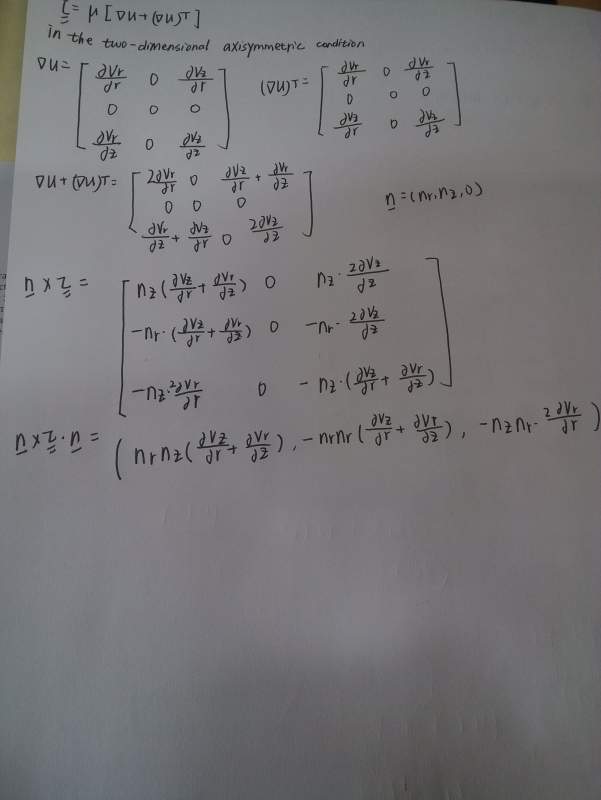 τ = μ [∇u + (∇u)T]
in the two-dimensional axisymmetric condition
∇u = [ ∂Vr/∂r 0 ∂Vz/∂r ; 0 0 0 ; ∂Vr/∂z 0 ∂Vz/∂z ] (∇u)T = [ ∂Vr/∂r 0 ∂Vr/∂z ; 0 0 0 ; ∂Vz/∂r 0 ∂Vz/∂z ]
∇u + (∇u)T = [ 2∂Vr/∂r 0 ∂Vz/∂r + ∂Vr/∂z ; 0 0 0 ; ∂Vr/∂z + ∂Vz/∂r 0 2∂Vz/∂z ] n = (nr, nz, 0)
n × τ = [ nz(∂Vz/∂r + ∂Vr/∂z) 0 nz · 2∂Vz/∂z ; -nr · (∂Vz/∂r + ∂Vr/∂z) 0 -nr · 2∂Vz/∂z ; -nz · 2∂Vr/∂r 0 - nz · (∂Vz/∂r + ∂Vr/∂z) ]
n × τ · n = ( nr nz (∂Vz/∂r + ∂Vr/∂z), - nr nr (∂Vz/∂r + ∂Vr/∂z), - nz nr · 2∂Vr/∂r )